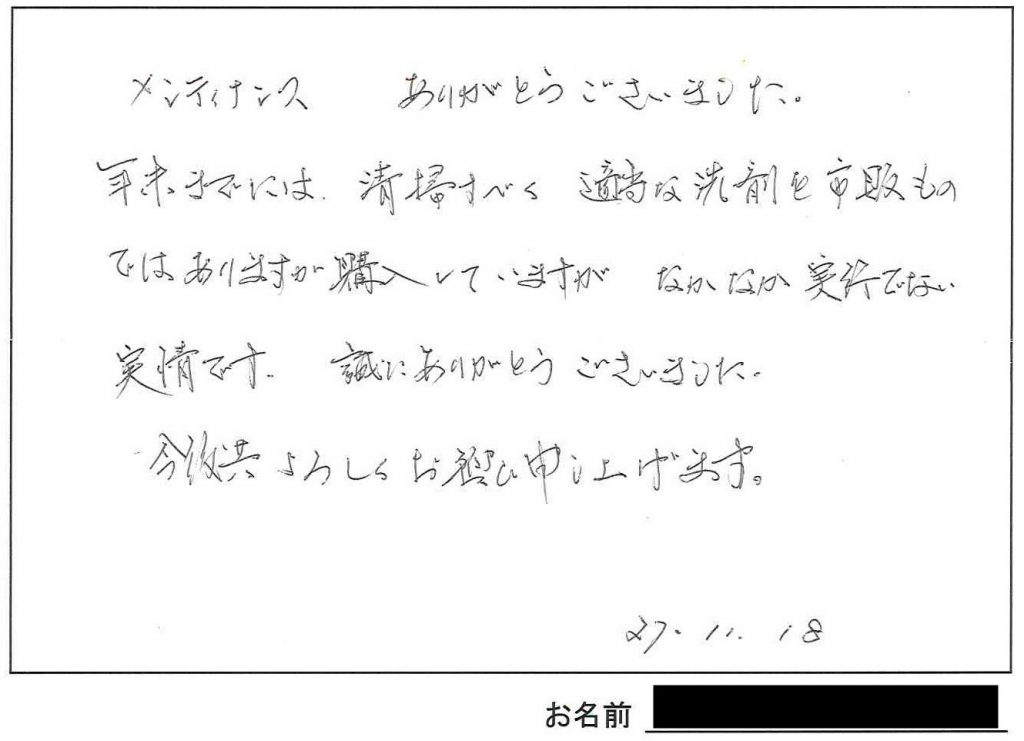 メンティナンス ありがとうございました。
年末までには、清掃すべく 適当な洗剤を市販もの
ではありますが購入していますが なかなか実行でない
実情です。 誠にありがとうございました。
今後共よろしくお願い申し上げます。
27. 11. 18
お名前